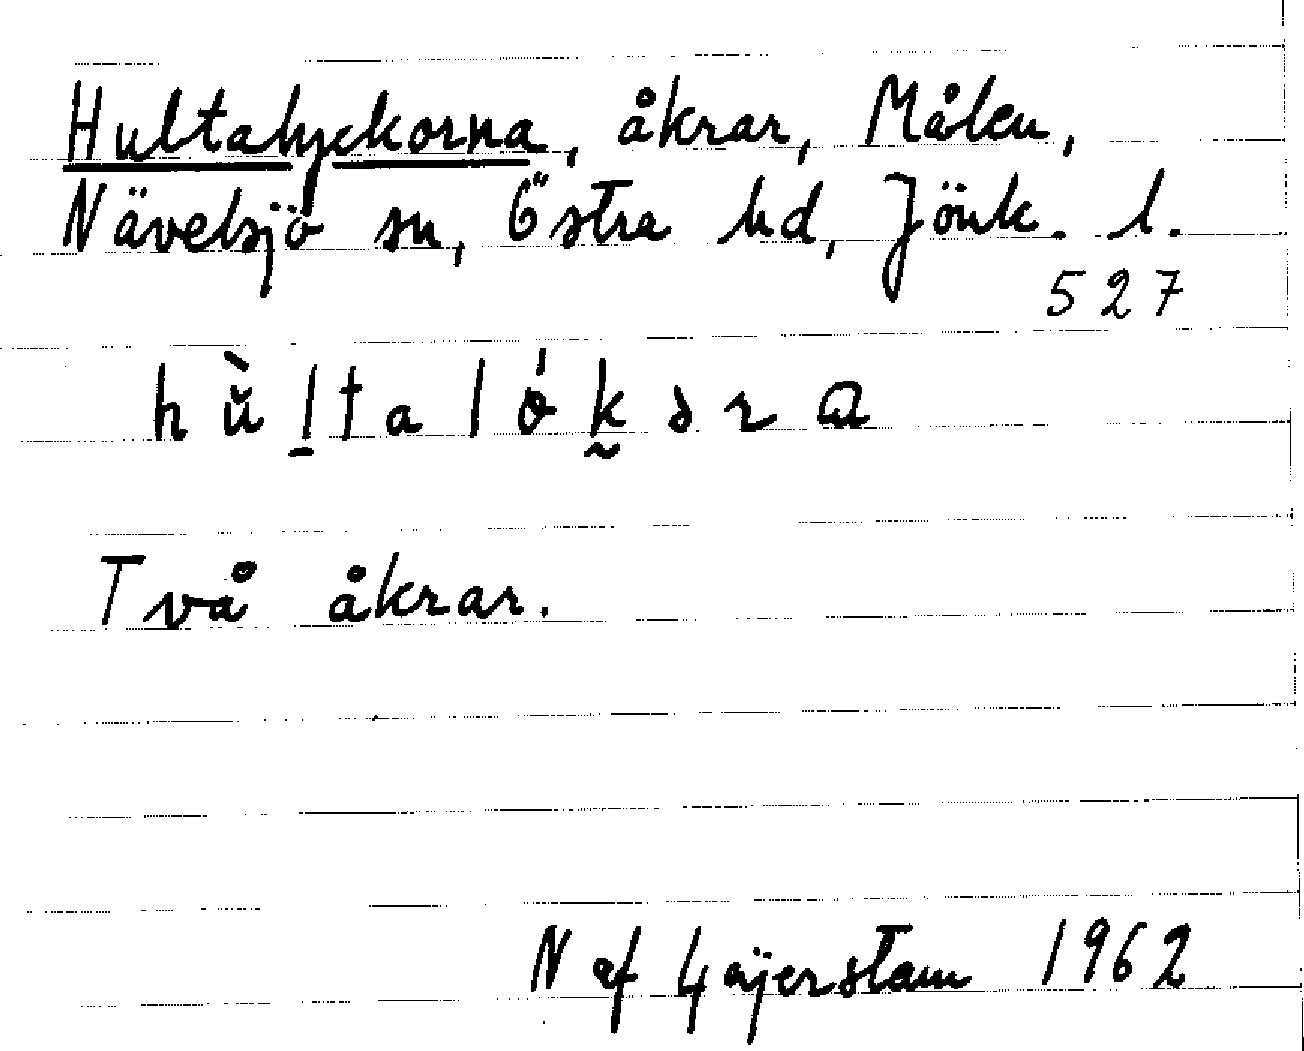 Hultalyckorna, åkrar, Målen,
Nävelsjö sn, Östra hd, Jönk. l.
527
Två åkrar.
N af Gäjerstam 1962